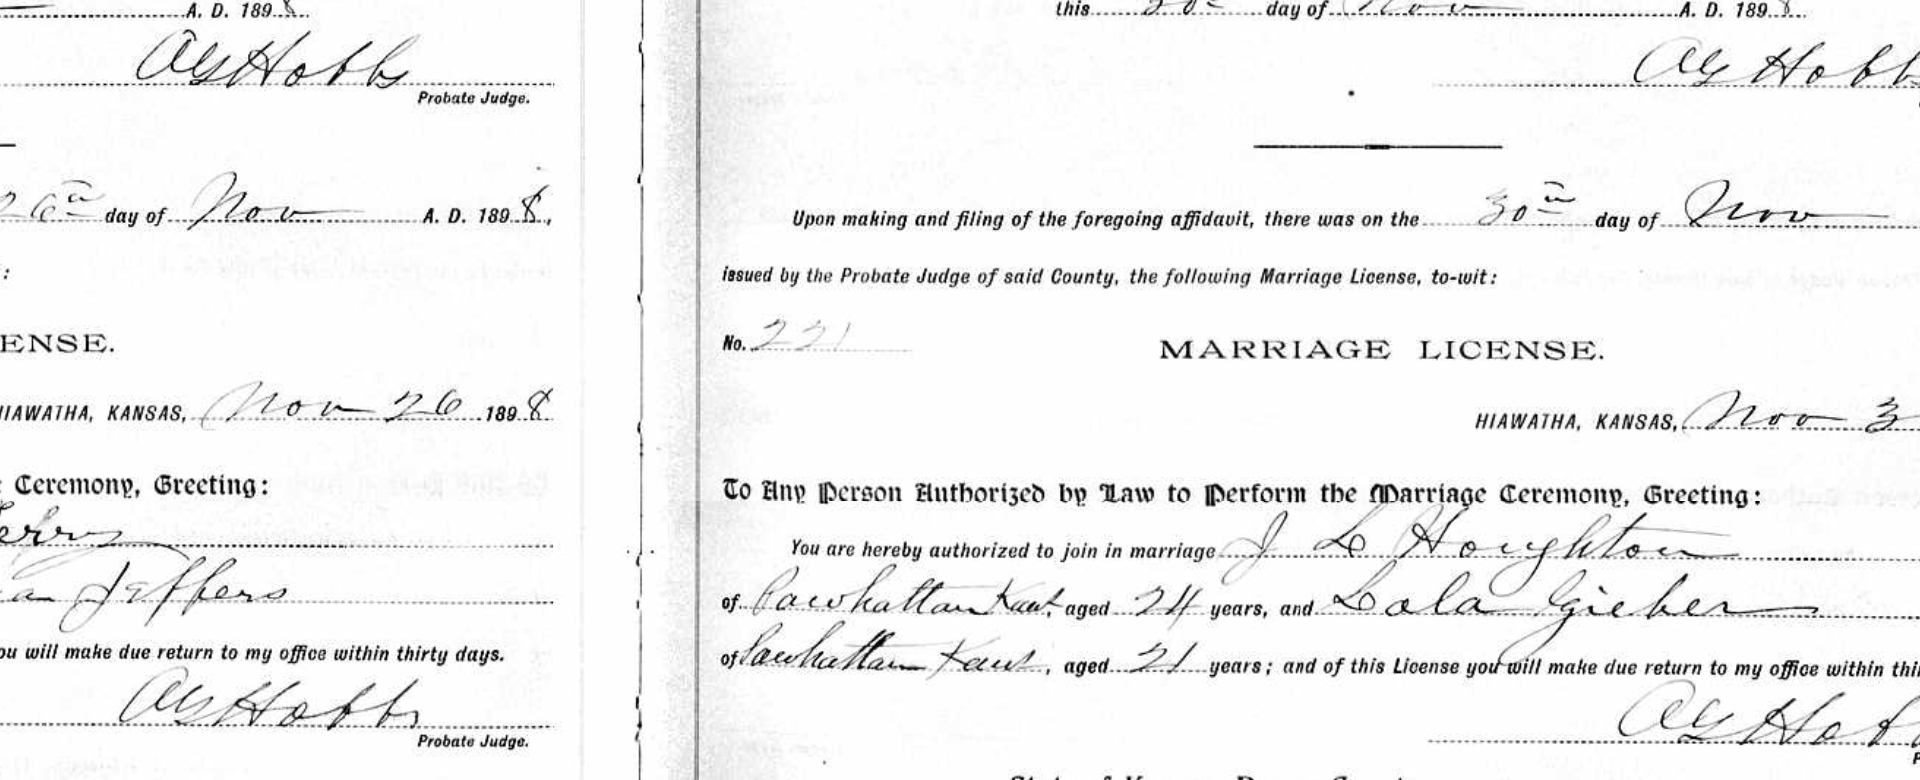 A. D. 1898.
AG Hobbs
Probate Judge.
26th day of Nov A. D. 1898,
:
ENSE.
HIAWATHA, KANSAS, Nov 26 1898
Ceremony, Greeting:
Jeffers
ou will make due return to my office within thirty days.
AG Hobbs
Probate Judge.
this 30th day of Nov A. D. 1898.
AG Hobbs
Upon making and filing of the foregoing affidavit, there was on the 30th day of Nov
issued by the Probate Judge of said County, the following Marriage License, to-wit:
No. 221
MARRIAGE LICENSE.
HIAWATHA, KANSAS, Nov 3
To Any Person Authorized by Law to Perform the Marriage Ceremony, Greeting:
You are hereby authorized to join in marriage J L Houghton
of Powhattan Kans, aged 24 years, and Lola Gieber
of Powhattan Kans, aged 21 years; and of this License you will make due return to my office within thi
AG Hob